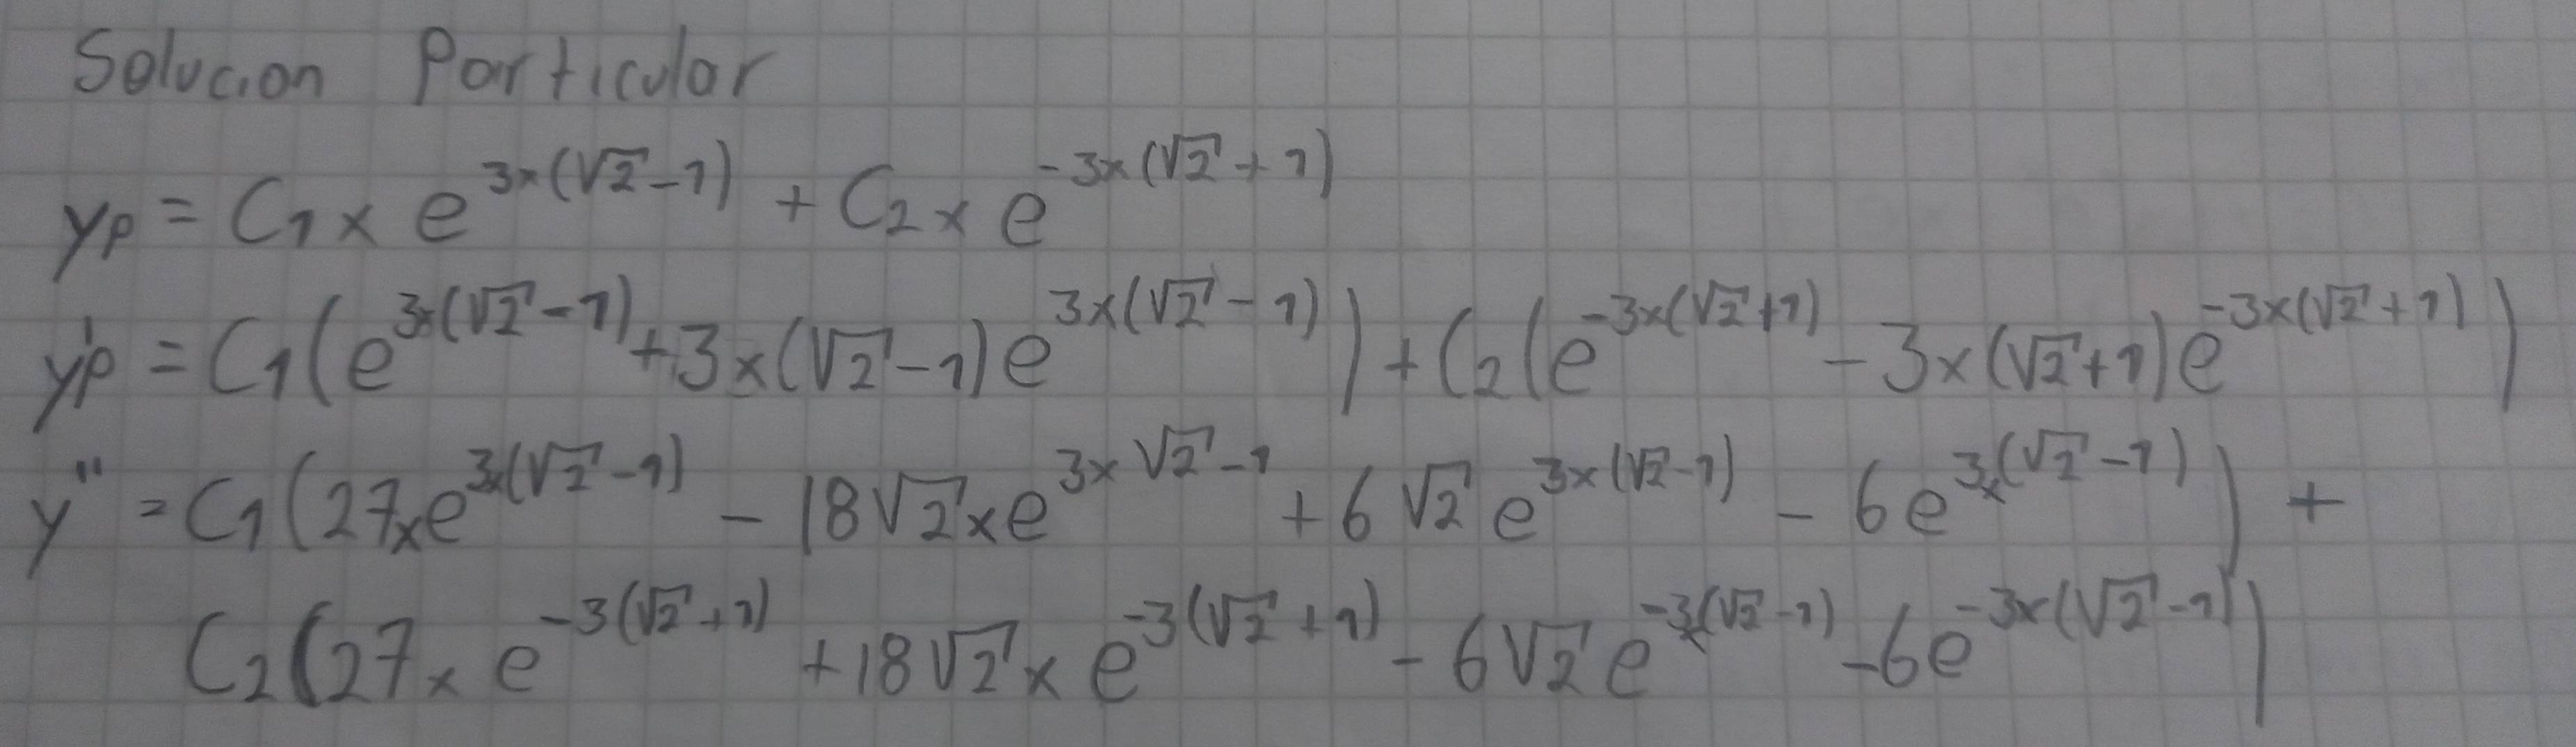 Solucion Particular
yp = C₁x e^(3x(√2-1)) + C₂x e^(-3x(√2+1))
y'p = C₁(e^(3x(√2-1)) + 3x(√2-1)e^(3x(√2-1))) + C₂(e^(-3x(√2+1)) - 3x(√2+1)e^(-3x(√2+1)))
y'' = C₁(27xe^(3x(√2-1)) - 18√2xe^(3x√2-1) + 6√2e^(3x(√2-1)) - 6e^(3x(√2-1))) +
C₂(27x e^(-3(√2+1)) + 18√2x e^(-3(√2+1)) - 6√2e^(-3x(√2-1)) - 6e^(-3x(√2-1)))